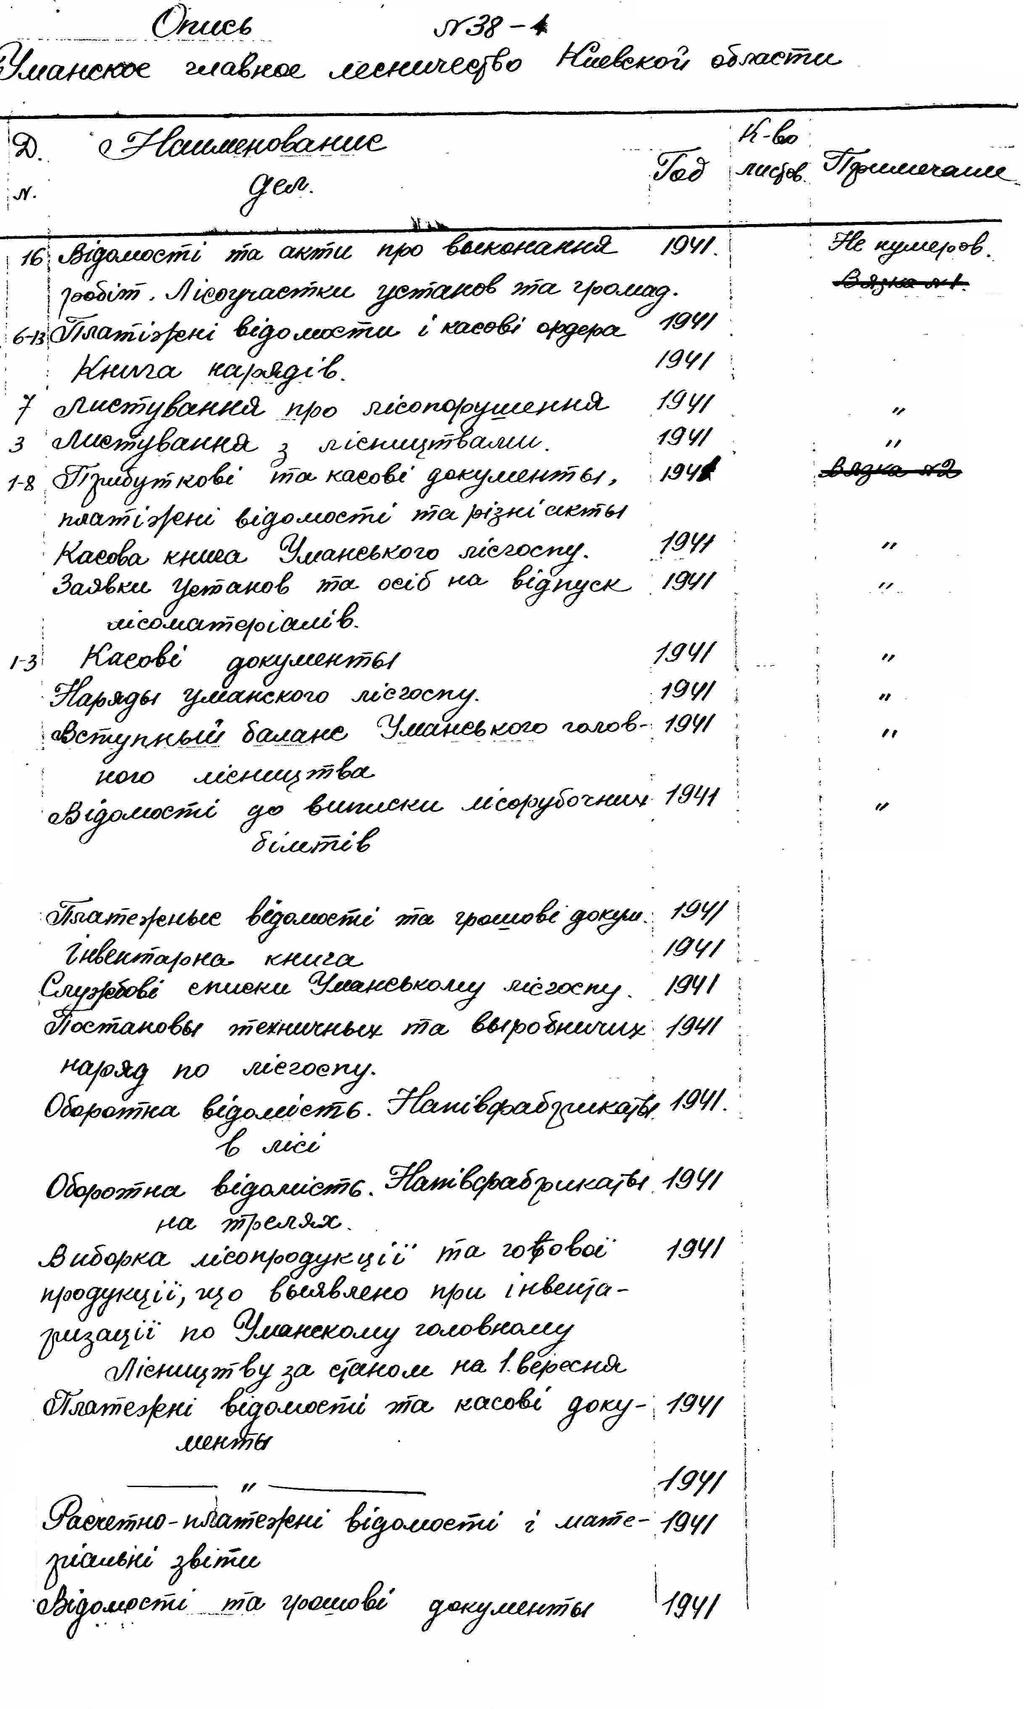 Опись N38-4
Уманское главное лесничество Киевской области
Д. N. Наименование дел. Год К-во листов. Примечание
16 Відомості та акти про выконання 1941. Не нумеров.
робіт. Лісоучастки установ та громад. Вязка N1.
6-13 Платіжні відомости і касові ордера 1941
Книга нарядів. 1941
7 Листування про лісопорушення 1941 "
3 Листування з лісництвами. 1941 "
1-8 Прибуткові та касові документы, 1941 Вязка N2
платіжні відомості та різні акты
Касова книга Уманського лісгоспу. 1941 "
Заявки установ та осіб на відпуск 1941 "
лісоматеріалів.
1-3 Касові документы 1941 "
Наряды уманского лісгоспу. 1941 "
Вступный баланс Уманського голов- 1941 "
ного лісництва
Відомості до виписки лісорубочних 1941 "
білетів
Платежные відомості та грошові докум. 1941
Інвентарна книга 1941
Службові списки Уманському лісгоспу. 1941
Постановы техничных та выробничих 1941
наряд по лісгоспу.
Оборотна відомість. Напівфабрикаты 1941.
в лісі
Оборотна відомість. Напівфабрикаты 1941
на трелях.
Виборка лісопродукції та готової 1941
продукції, що выявлено при інвента-
ризації по Уманскому головному
Лісництву за станом на 1. вересня
Платежні відомости та касові доку- 1941
менты
— " — 1941
Расчетно-платежні відомості і мате- 1941
ріальні звіти
Відомості та грошові документы 1941